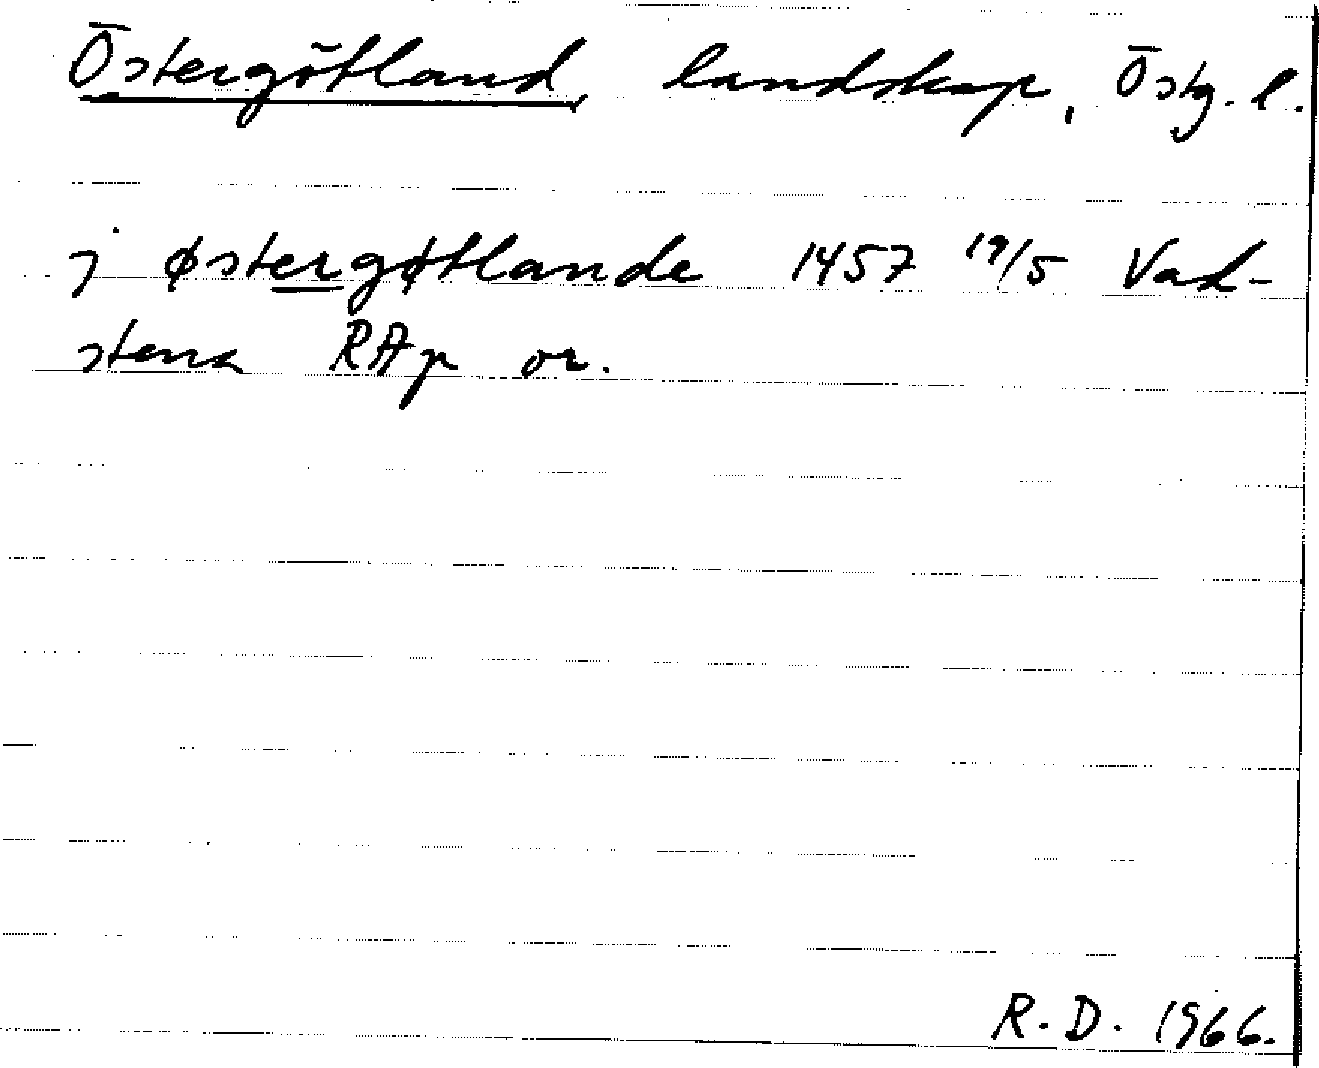 Östergötland, landskap, Östg. l.
j østergøtlande 1457 19/5 Vad-
stena RAp or.
R. D. 1966.